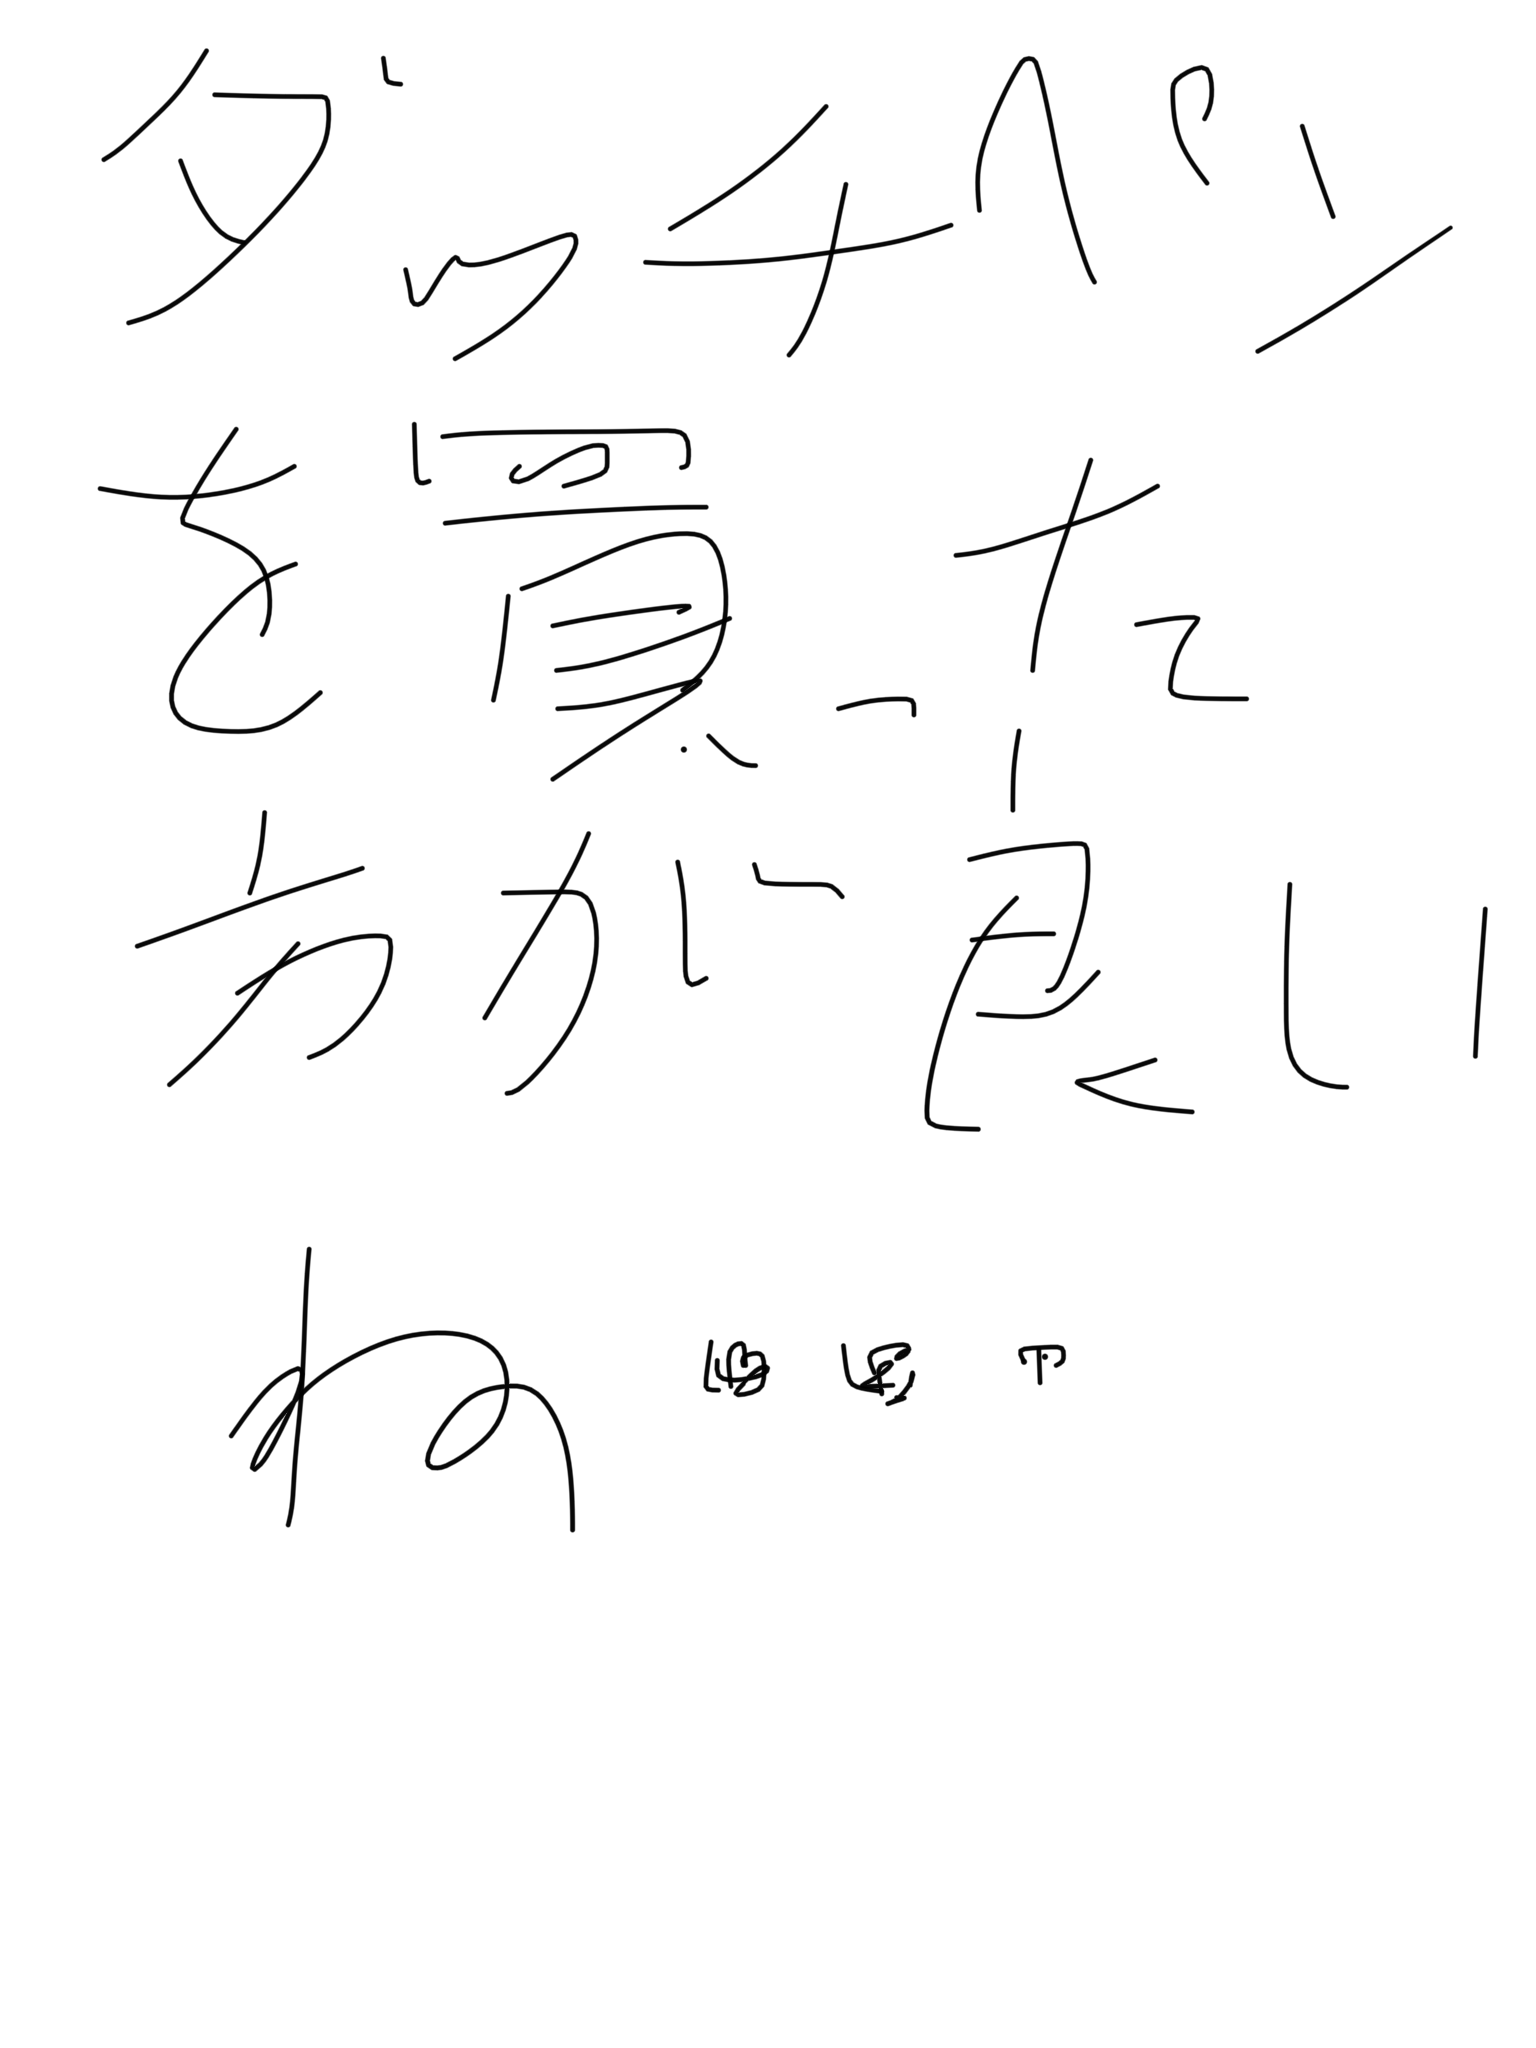 ダッチペン
を買った
方が良い
ね